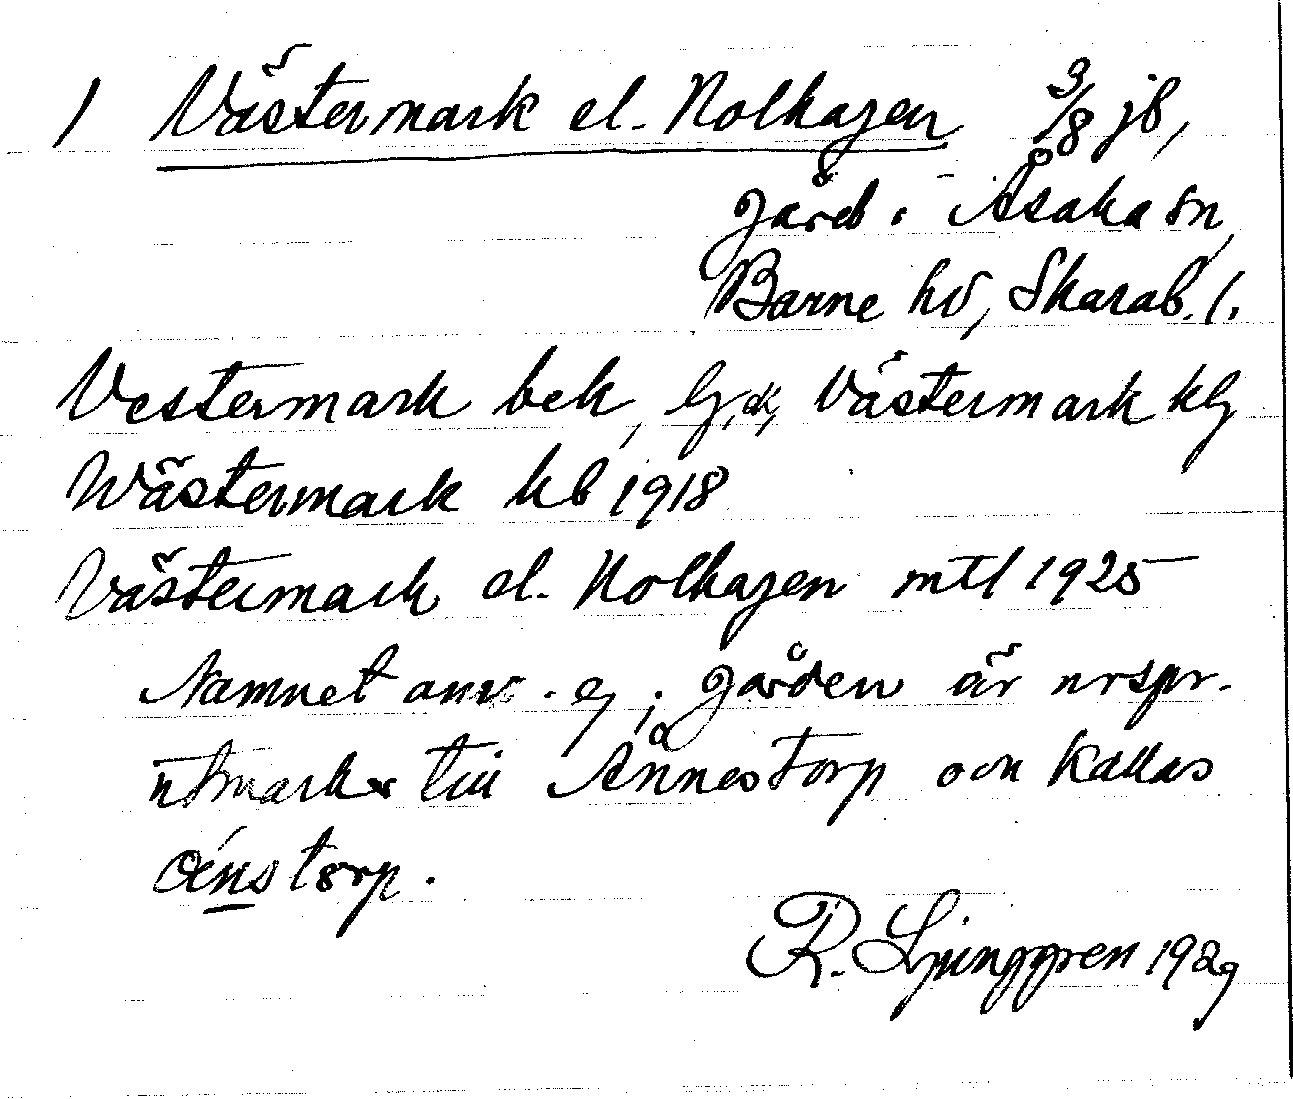 1 Västermark el. Nolhagen 3/8 jb,
gård i Åsaka sn,
Barne hd, Skarab. l.
Vestermark bek, Gek, Västermark klg
Wästermark kb 1918
Västermark el. Nolhagen mtl 1925
Namnet anv. ej; gården är urspr.
utmark till Ånnestorp och kallas
torp.
R. Ljunggren 1929